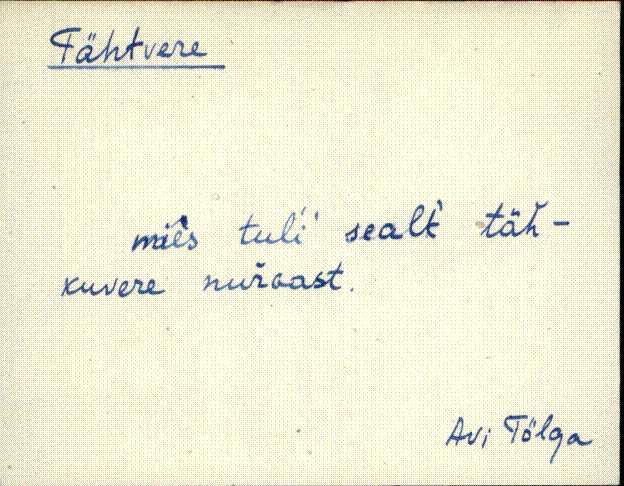 Tähtvere
miès tuli sealt täh-
kuvere nuŕɢast.
Avi Tõlga